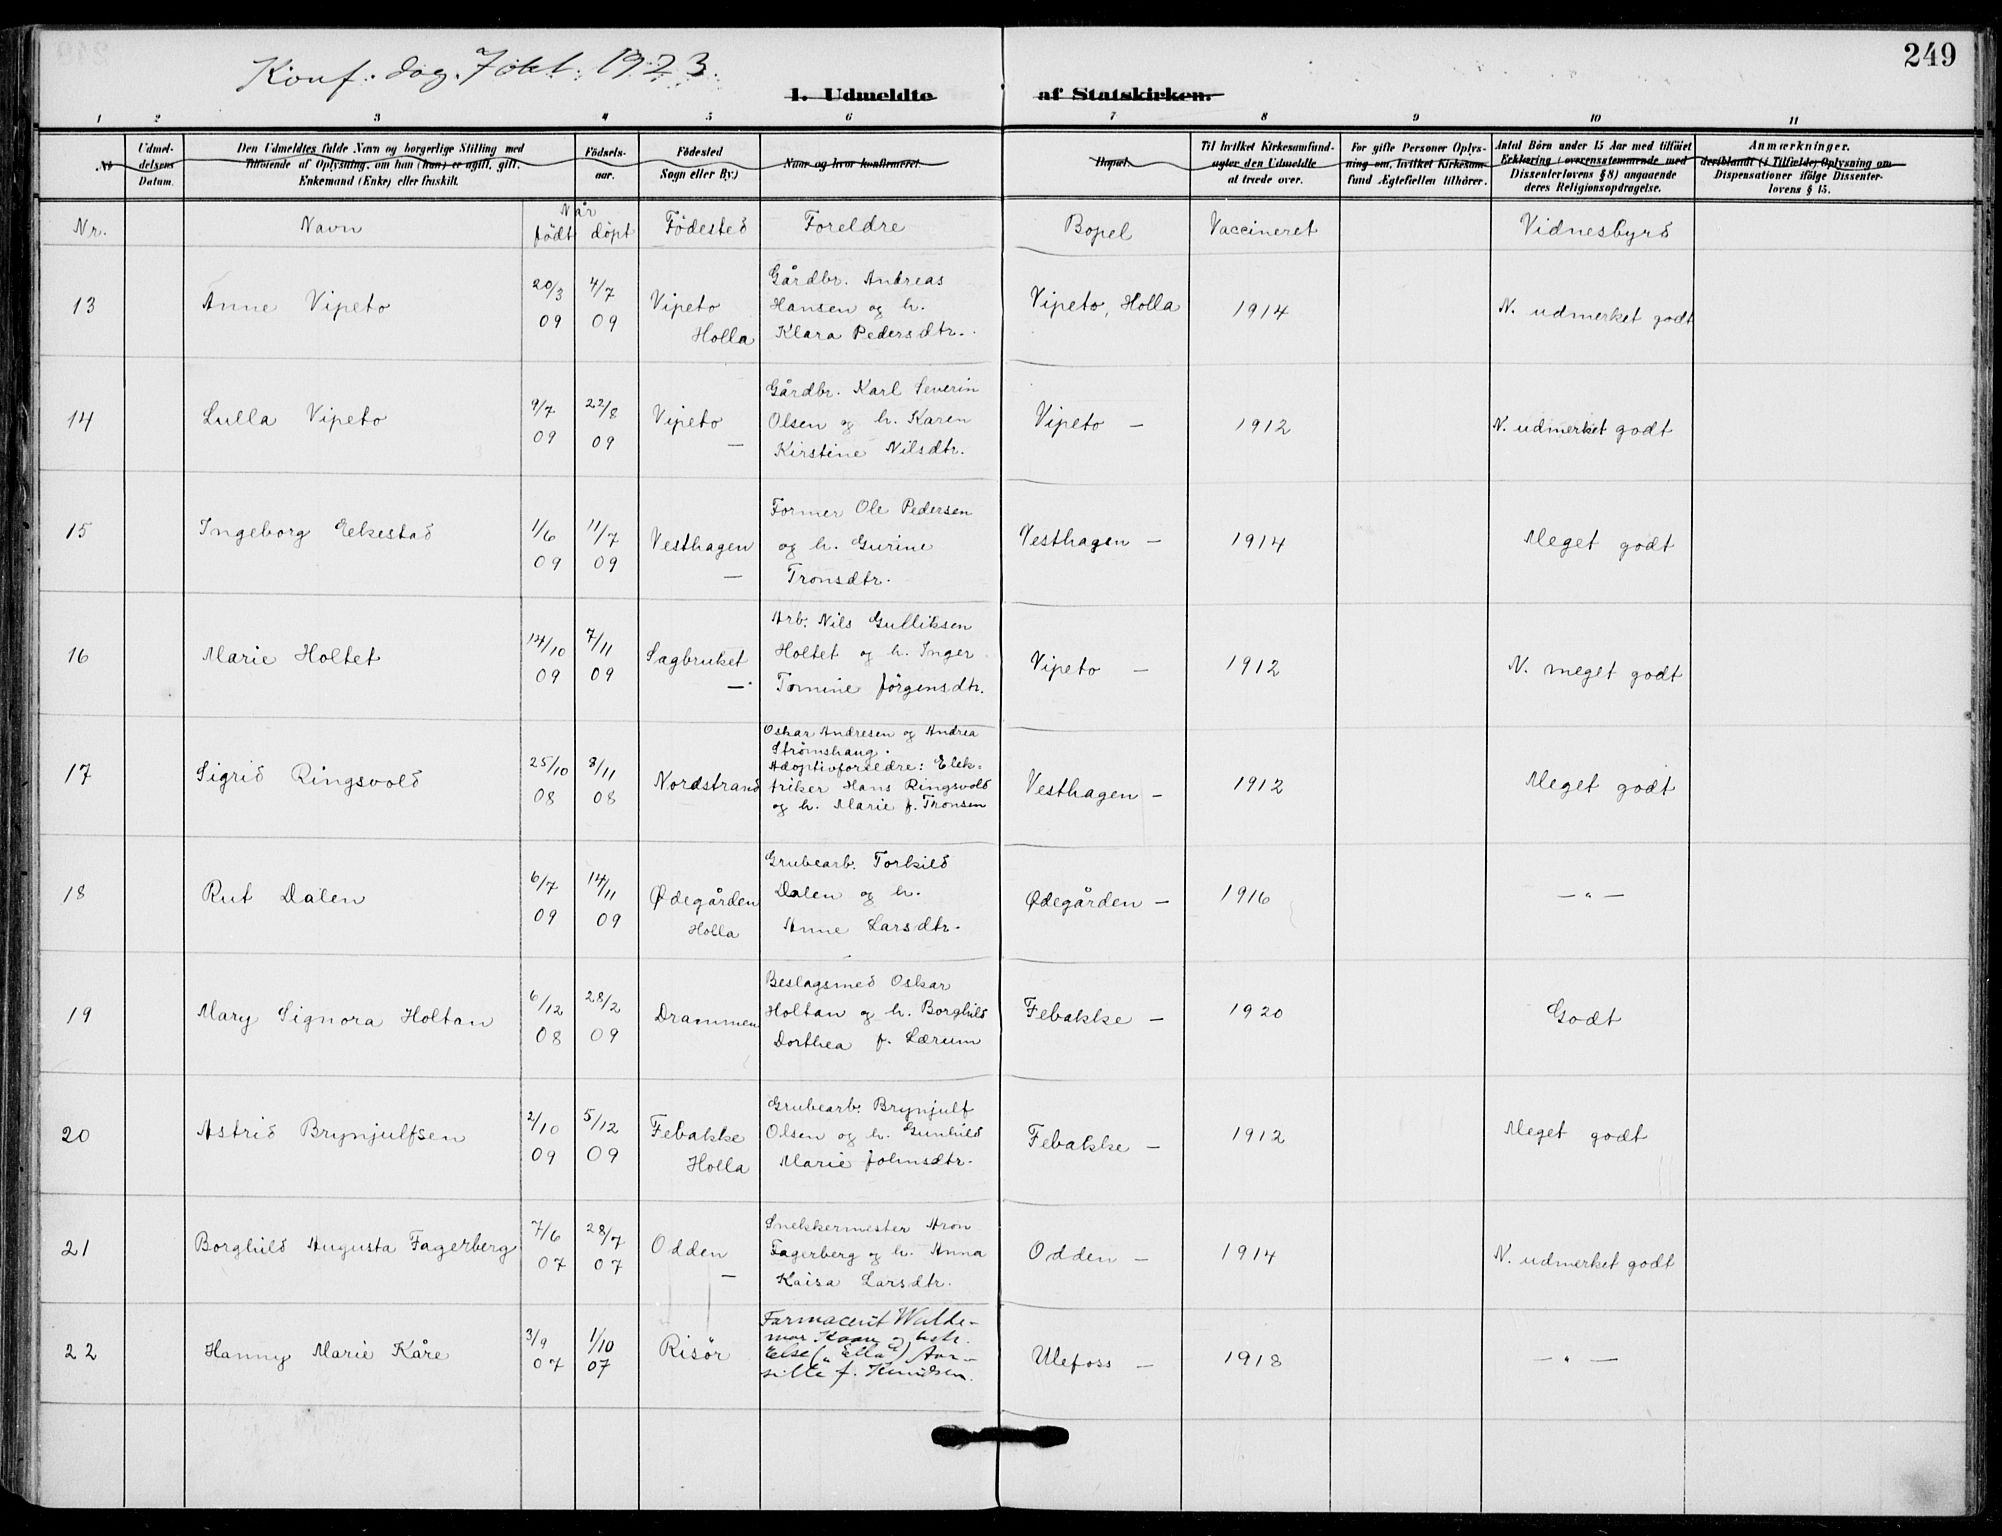 249
Konf. dag. 7 okt. 1923.
1. Udmeldte af Statskirken.
1 2 3 4 5 6 7 8 9 10 11
No
Udmel-
delsens
Datum.
Den Udmeldtes fulde Navn og borgerlige Stilling med
Tilføiende af Oplysning, om han (hun) er ugift, gift,
Enkemand (Enke) eller fraskilt.
Födsels-
aar.
Födested
Sogn eller By.)
Naar og hvor konfirmeret
Bopæl
Til hvilket Kirkesamfund-
agter den Udmeldte
at træde over.
For gifte Personer Oplys-
ning om, hvilket Kirkesam-
fund Ægtefællen tilhører.
Antal Börn under 15 Aar med tilföiet
Erklæring (overensstemmende med
Dissenterlovens § 8) angaaende
deres Religionsopdragelse.
Anmærkninger.
deriblandt (i Tilfælde) Oplysning om
Dispensationer ifölge Dissenter-
lovens § 15.
Nr. Navn Når
födt döpt Födested Foreldre Bopel Vaccineret Vidnesbyrd
13 Anne Vipeto 20/3 09 4/7 09 Vipeto
Holla
Gårdbr. Andreas
Hansen og h.
Klara Pedersdtr.
Vipeto, Holla 1914 N. udmerket godt
14 Lulla Vipeto 9/7 09 22/8 09 Vipeto
—
Gårdbr. Karl Severin
Olsen og h. Karen
Kirstine Nilsdtr.
Vipeto — 1912 N. udmerket godt
15 Ingeborg Eekestad 1/6 09 11/7 09 Vesthagen
—
Former Ole Pedersen
og h. Gurine
Tronsdtr.
Vesthagen — 1914 Meget godt
16 Marie Holtet 14/10 09 7/11 09 Sagbruket
—
Arb. Nils Gulliksen
Holtet og h. Inger
Tomine Jörgensdtr.
Vipeto — 1912 N. meget godt
17 Sigrid Ringsvold 25/10 08 8/11 08 Nordstrand
Oskar Andresen og Andrea
Strömshaug.
Adoptivforeldre: Elek-
triker Hans Ringsvold
og h. Marie f. Tronsen
Vesthagen — 1912 Meget godt
18 Rut Dalen 6/7 09 14/11 09 Ødegården
Holla
Grubearb. Torkild
Dalen og h.
Anne Larsdtr.
Ødegården — 1916 — " —
19 Mary Signora Holtan 6/12 08 28/2 09 Drammen
Beslagsmed Oskar
Holtan og h. Borghild
Dorthea f. Lærum
Febakke — 1920 Godt
20 Astrid Brynjulfsen 2/10 09 5/12 09 Febakke
Holla
Grubearb. Brynjulf
Olsen og h. Gunhild
Marie Johnsdtr.
Febakke — 1912 Meget godt
21 Borghild Augusta Fagerberg 7/6 07 28/7 07 Odden
—
Snekkermester Aron
Fagerberg og h. Anna
Kaisa Larsdtr.
Odden — 1914 N. udmerket godt
22 Hanny Marie Kåre 3/9 07 1/10 07 Risör
Farmaceut Walde-
mar og
Else ("Ella")
f. Knudsen.
Ulefoss — 1918 — " —